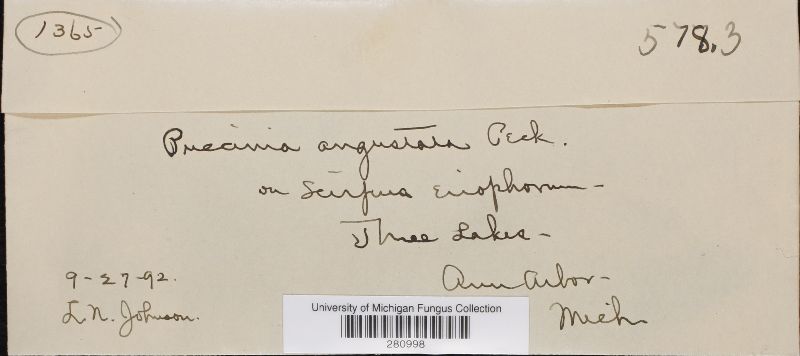 1365
578.3
Puccinia angustata Peck.
on Scirpus Eriophorum -
Three Lakes -
9-27-92.
Ann Arbor -
L. N. Johnson.
Mich
University of Michigan Fungus Collection
280998